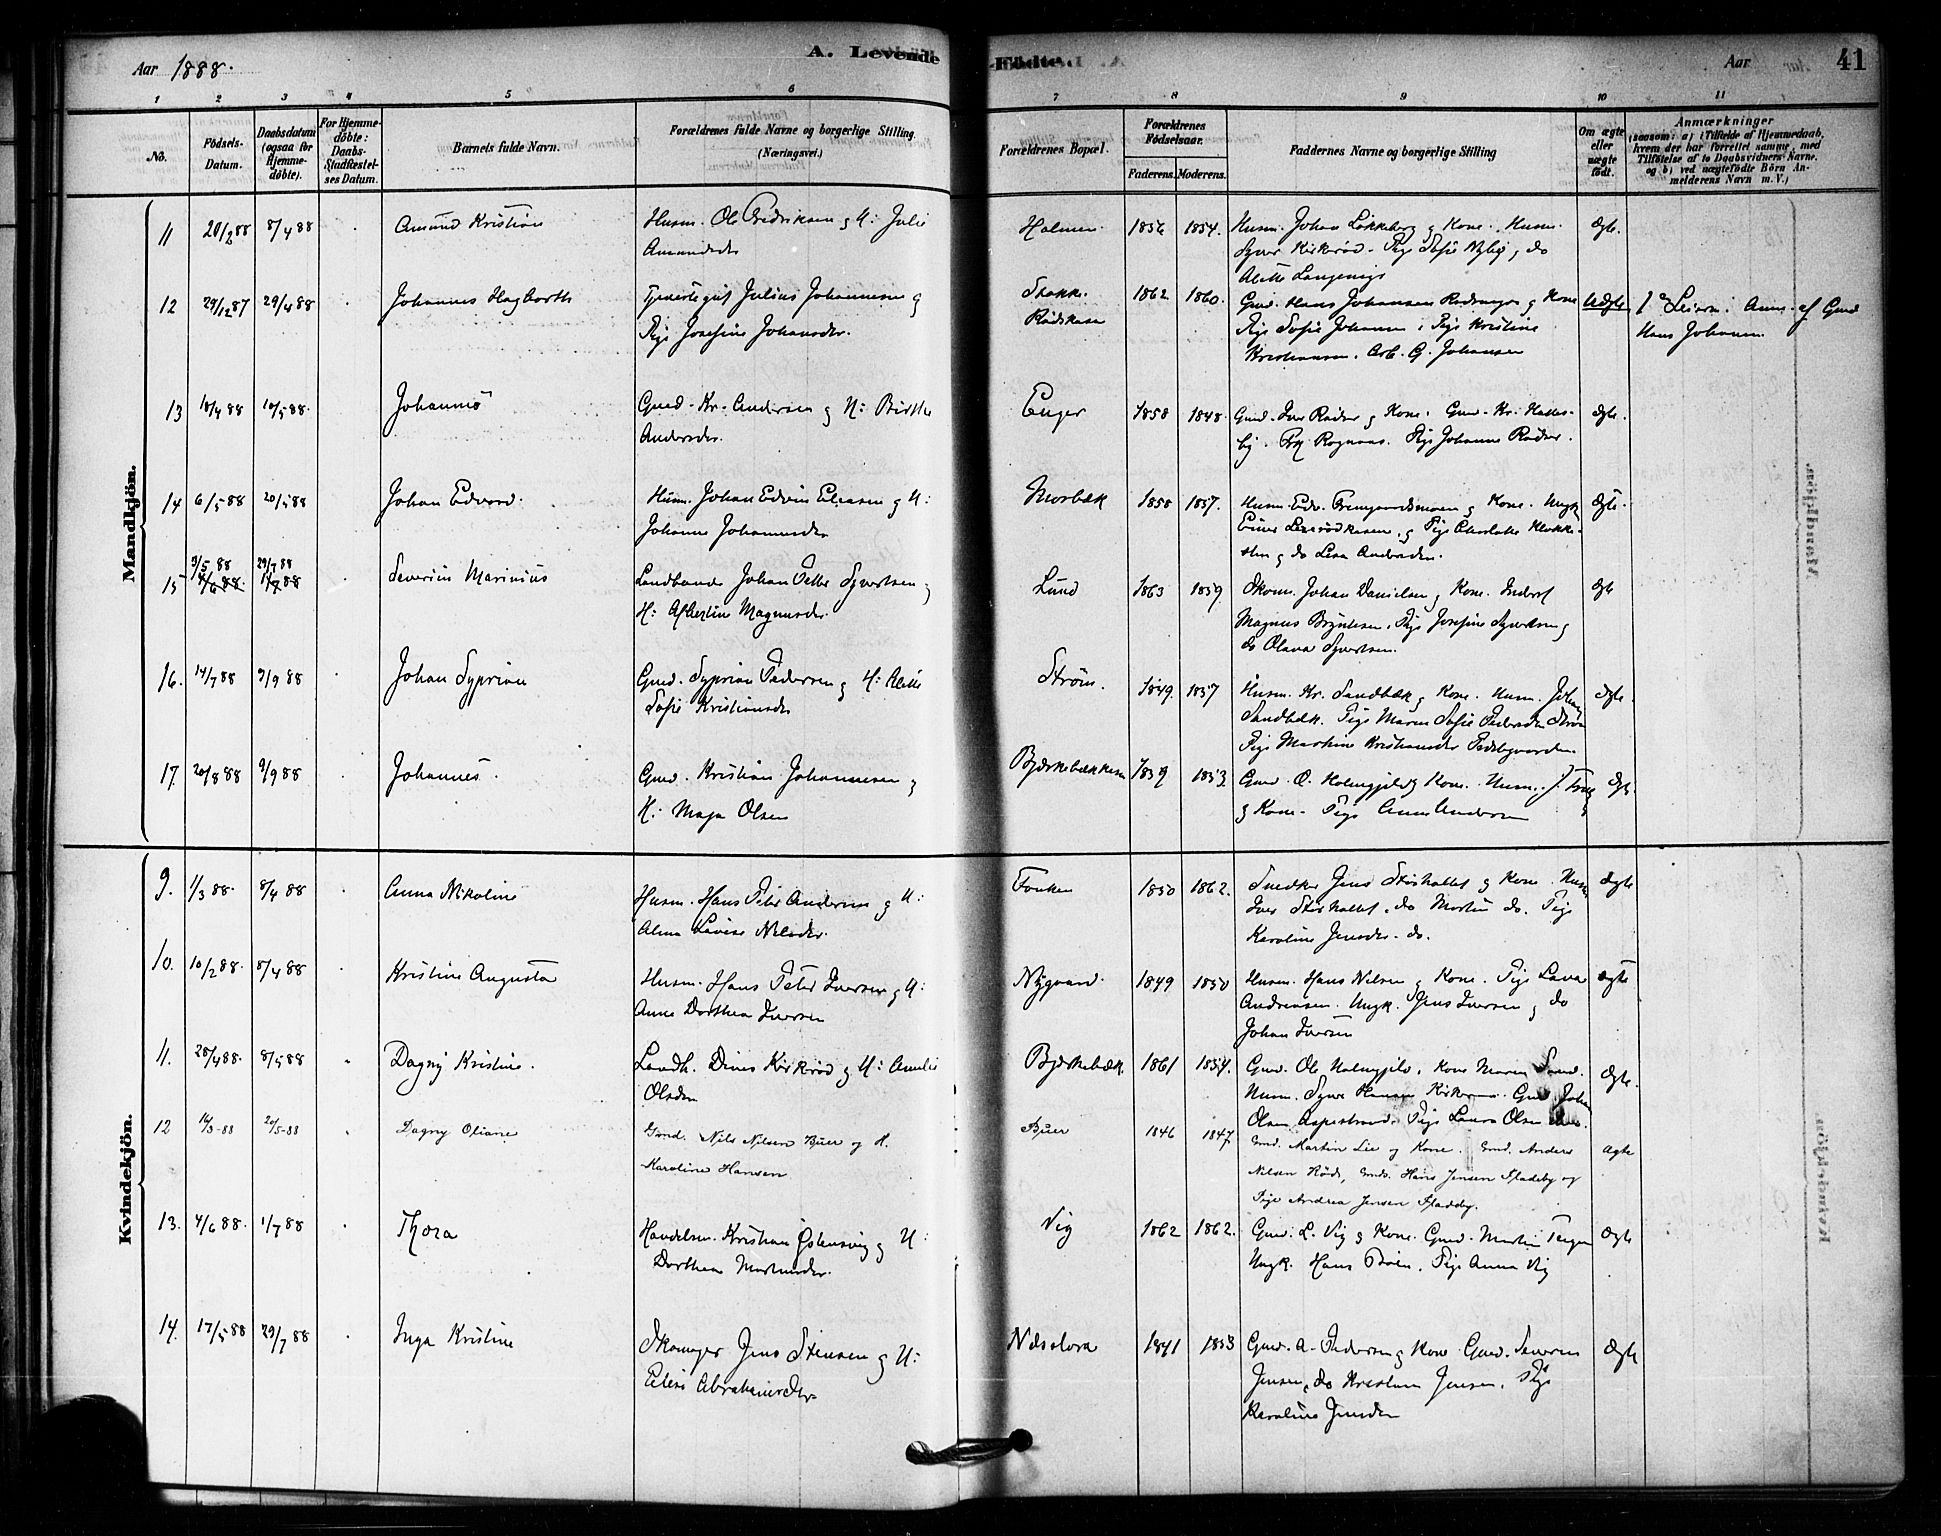 Aar 1888.
A. Levende
Fødte.
Aar
41
1 2 3 4 5 6 7 8 9 10 11
No.
Födsels-Datum.
Daabsdatum (ogsaa for Hjemmedöbte).
For Hjemmedöbte: Daabs-Stadfæstelses Datum.
Barnets fulde Navn.
Forældrenes fulde Navne og borgerlige Stilling. (Næringsvei.)
Forældrenes Bopæl.
Forældrenes Födselsaar.
Faderens. Moderens.
Faddernes Navne og borgerlige Stilling
Om ægte eller uægte födt.
Anmærkninger
(saasom: a) i Tilfælde af Hjemmedaab, hvem der har forrettet samme, med Tilföielse af to Daabsvidners Navne, og b) ved uægtefödte Börn Anmelderens Navn m. V.)
Mandkjön.
11 20/2 88 8/4 88 Amund Kristian Husm. Ole Fredriksen og H: Julie
Amundsdr
Holmen. 1856 1854. Husm. Johan Løkkeberg og Kone. Husm.
Syver Kirkerød. Pige Sofie Nyby, do
Alette Langengs
Ægte.
12 29/12 87 29/4 88 Johannes Hagbarth Tjenestegut Julius Johannesen og
Pige Josefine Johansdr.
Stokke
Rødskasa
1862 1860. Gmd. Hans Johansen Rødsengen og Kone
Pige Sofie Johansen, Pige Kristine
Kristiansen. Arb. G. Johansen
Uægte
Anm. af Gmd
Hans Johansen
13 18/4 88 10/5 88. Johannes Gmd. Kr. Andersen og H: Birthe
Andersdr.
Enger 1858 1848. Gmd. Iver Rødser og Kone. Gmd. Kr. Halles-
by. Pige Johanne Rødser.
Ægte.
14 6/5 88 20/5 88 Johan Edvard. Husm. Johan Edvin Eliasen og H:
Johanne Johannesdr
Morbæk 1858 1857. Husm. Edv. og Kone. Ungk
og Pige Charlotte Klokke-
og do Lesa Andersdr.
Ægte.
15 9/5 88 29/7 88
4/6 88. 1/7 88
Severin Marinius Landhandl. Johan Petter Syvertsen og
H: Albertine Magnusdr.
Lund 1863 1859. Skom. Johan Danielsen og Kone. Inderst
Magnus Bryntesen. Pige Josefine Syvertsen og
do Olava Syvertsen.
Ægte
16. 14/7 88 9/9 88 Johan Syprian Gmd. Syprian Pedersen og H: Alette
Sofie Kristiansdr
Strøm. 1849. 1857 Husm. Kr. Sandbæk og Kone. Husm. Johan
Sandbæk. Pige Maren Sofie Pedersdr Strøm
Pige Martine Kristiansdr
Ægte.
17. 20/8 88 9/9 88 Johannes. Gmd. Kristian Johannesen og
H: Maja Olsen
Bjærkebækkasa 1859 1853. Gmd. O. Holmgjild og Kone. Husm. J.
og Kone. Pige Anne Andersen
Ægte.
Kvindekjön.
9. 1/3 88. 8/4 88 Anna Nikoline Husm. Hans Peter Andersen og H:
Alma Lovise Nilsdr.
Fosken 1850 1862. Snedker Jens Størhallet og Kone. Husm
Iver Størhallet. do Martin do. Pige
Karoline Jensdr. do.
Ægte
10. 10/2 88. 8/4 88 Kristine Augusta Husm. Hans Peter Iversen og H:
Anne Dorthea Iversen
Nygaard. 1849 1850 Husm. Hans Nilsen og Kone. Pige Lava
Andreasen. Ungk. Jens Iversen og do
Johan Iversen
Ægte
11. 28/4 88. 8/5 88 Dagny Kristine. Landh. Dines Kirkrød og H: Amalie
Olsdr
Bjerkebæk. 1861 1854. Gmd. Ole Holmgjild, Kone Maren
Husm. Syver Hansen Gmd. Johan
Olsen Aspestrand. Pige Laura Olsen
Ægte.
12 14/3-88 20/5-88 Dagny Oliane Gmd. Nils Nilsen Buer og H.
Karoline Hansen
Buer 1846 1847 Gmd. Martin Lie og Kone. Gmd. Anders
Nilsen Röds, Gmd. Hans Jensen Spladeby og
Pige Andrea Jensen Spladeby.
ægte
13. 4/6 88. 1/7 88 Thora Handelsm. Kristian Østensvig og H:
Dorthea Martinsdr.
Vig 1862 1862. Gmd. L. Vig og Kone. Gmd. Martin Teigen
Ungk. Hans Bøen. Pige Anna Vig
Ægte
14. 17/5 88 29/7 88 Inga Kristine Skomager Jens Stensen og H:
Elise Abrahamsdr
Nesselora 1841 1853 Gmd. A. Pedersen og Kone. Gmd. Severin
Jensen, do Kristian Jensen. Pige
Karoline Jensdr
Ægte